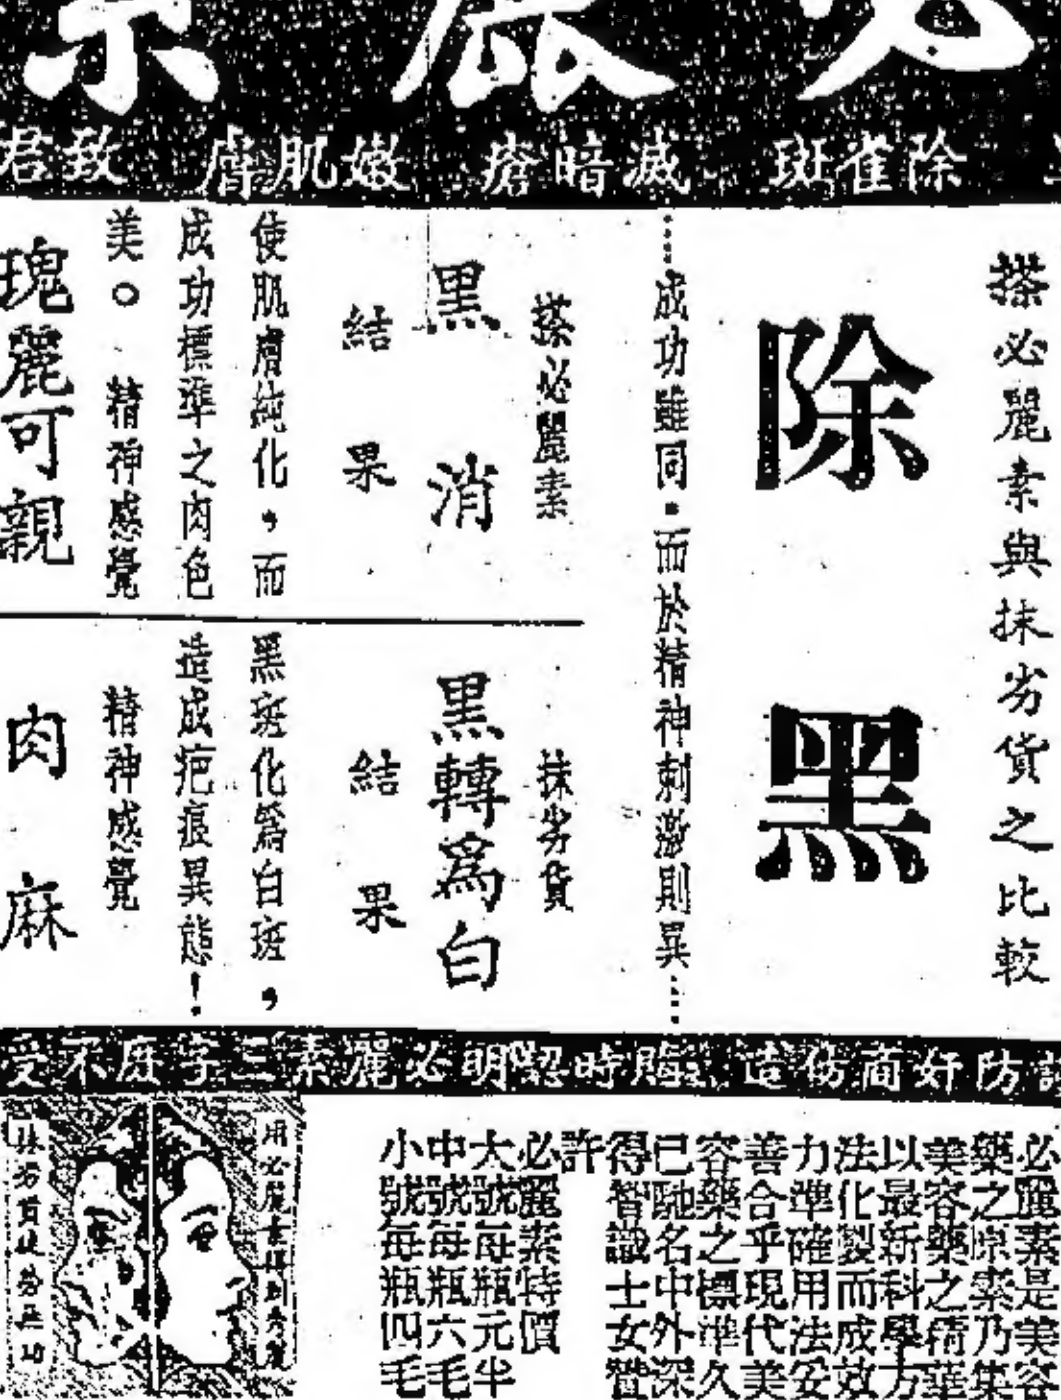 必麗素
除雀斑 滅暗瘡 嫩肌膚 致君
搽必麗素與抹劣貨之比較
除黑
……成功雖同。而於精神刺激則異……
搽必麗素
黑消
結果
使肌膚純化,而
成功標準之肉色
美。 精神感覺
瑰麗可親
抹劣貨
黑轉爲白
結果
黑斑化爲白斑,
造成疤痕異態!
精神感覺
肉麻
防奸商仿造 購時認明必麗素三字庶不受
必麗素是美容
藥之原素乃集
美容藥之精華
以最新科學方
法化製而成效
力準確用法安
善合乎現代美
容藥之標準久
已馳名中外深
得智識士女
許
必麗素特價
大號每瓶元半
中號每瓶六毛
小號每瓶四毛
用必麗素得到秀麗
抹劣貨使勞無功